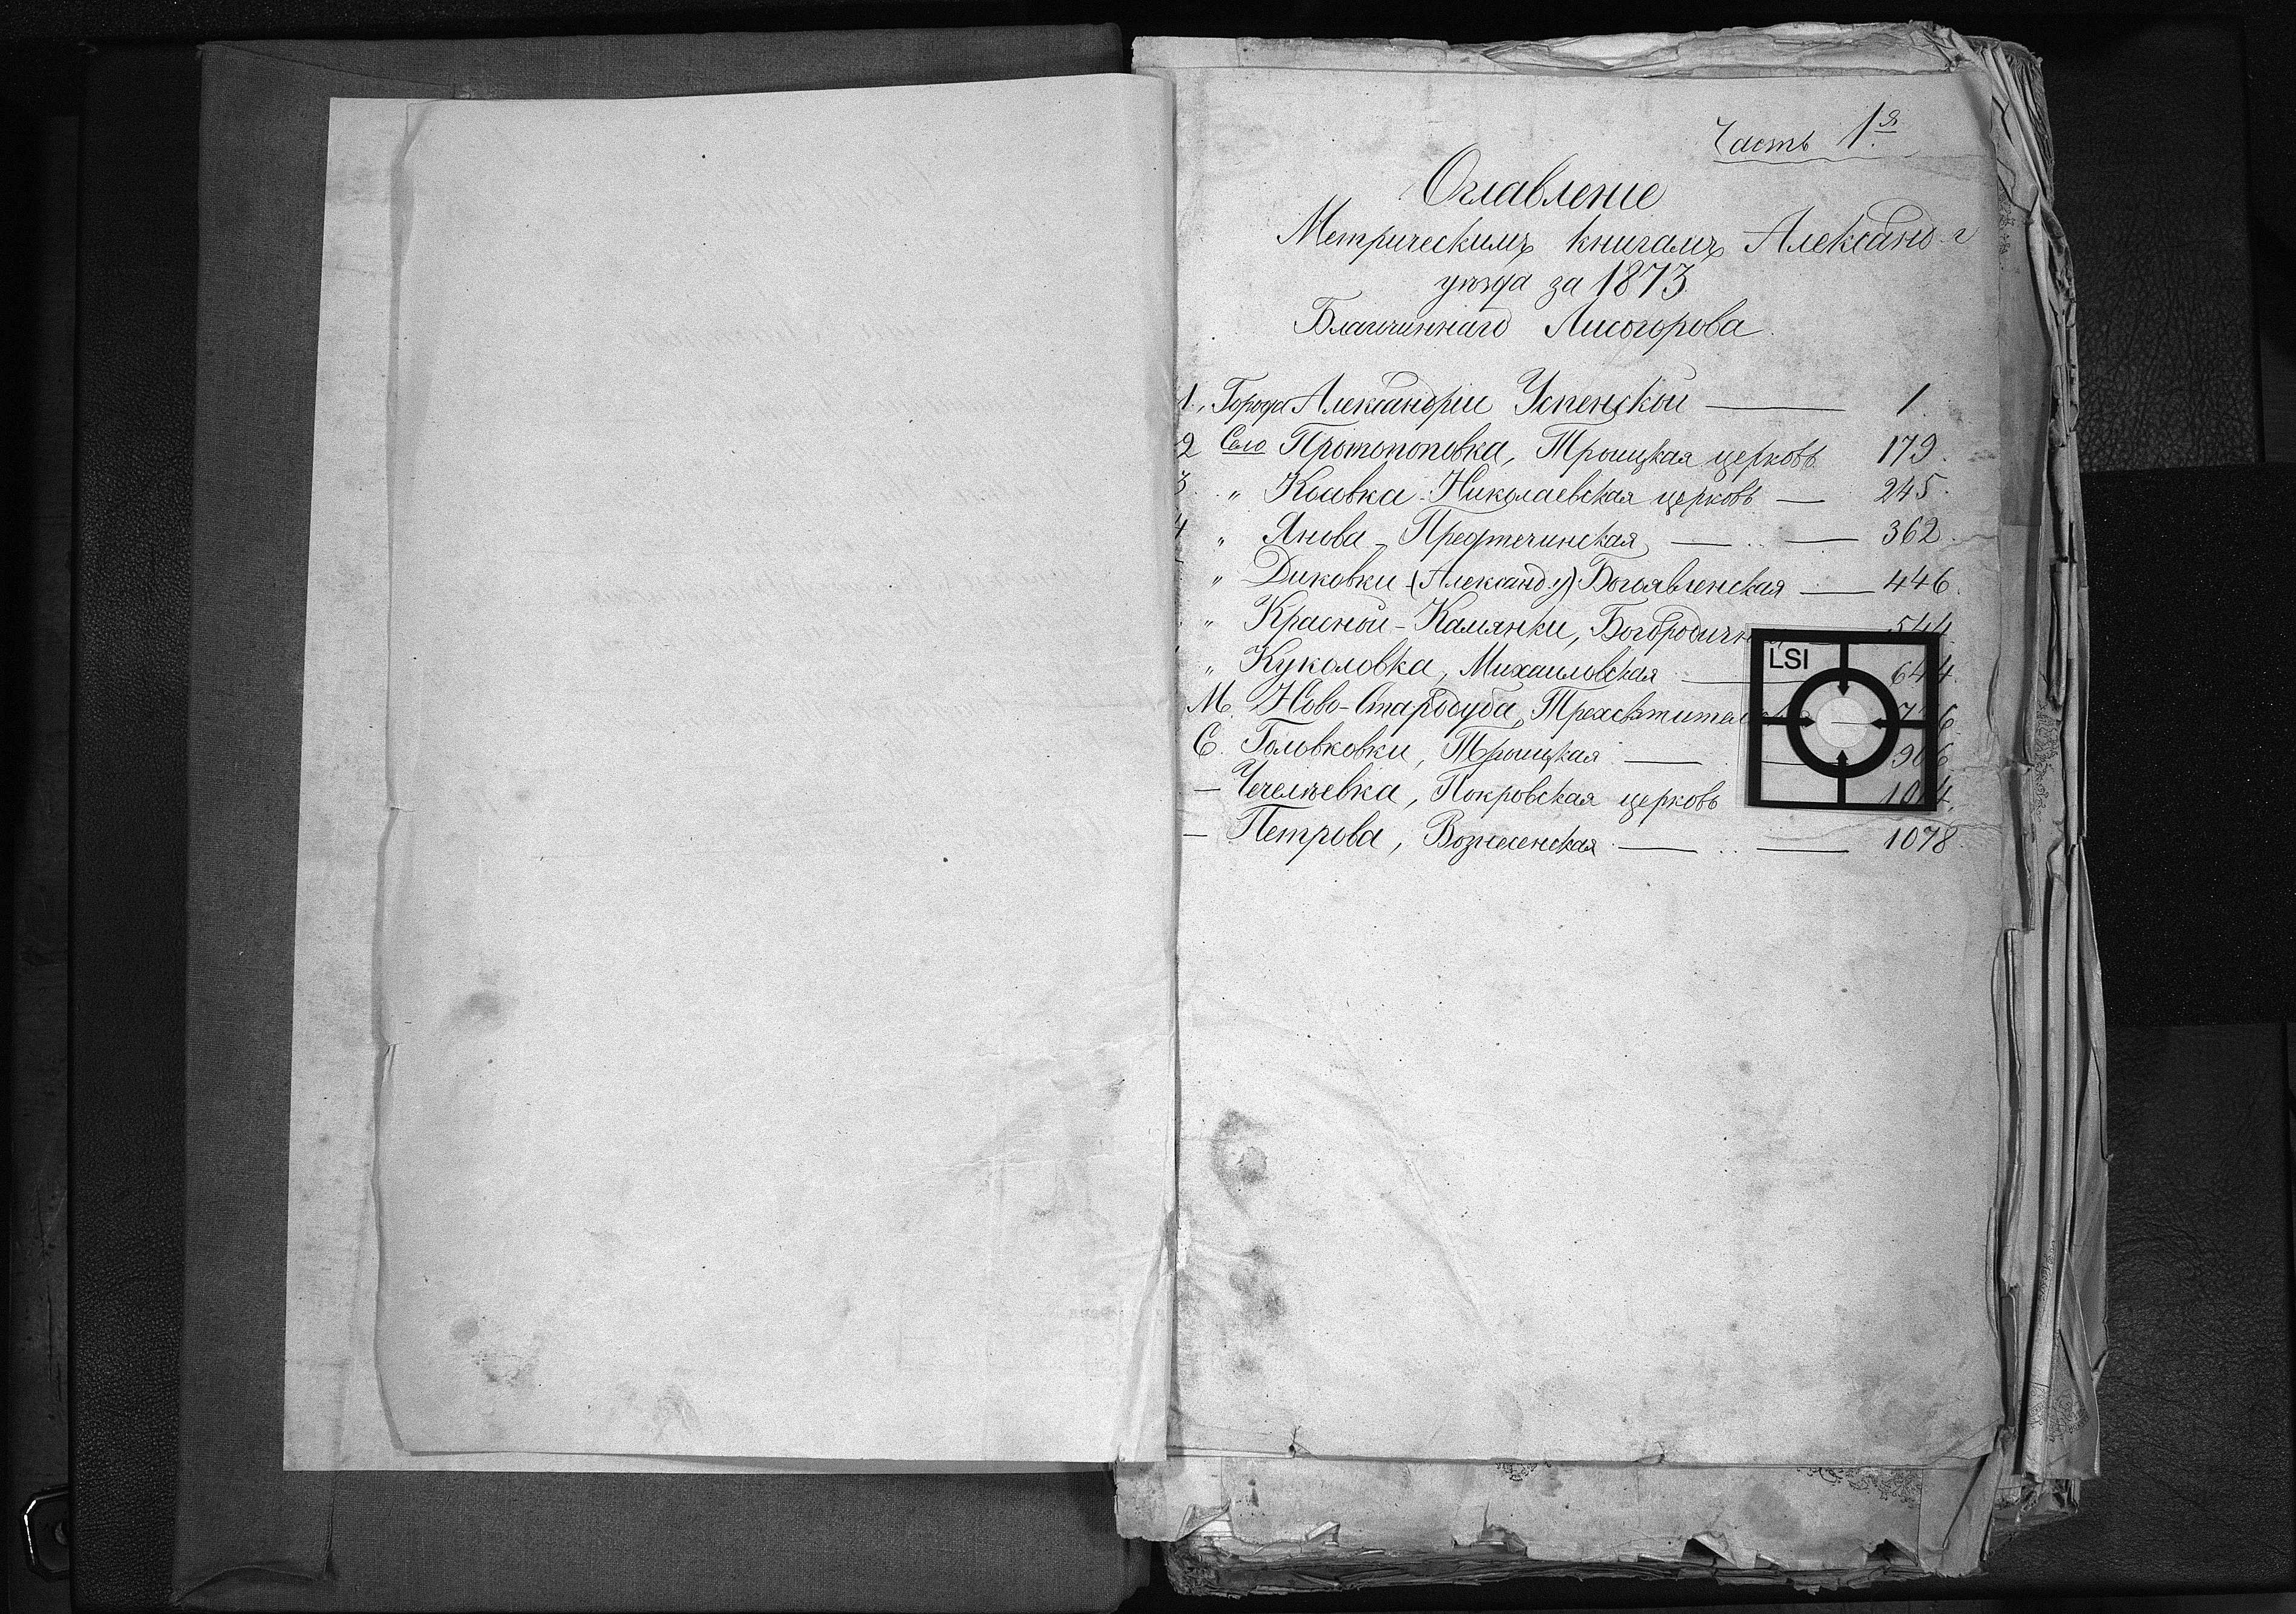 Часть 1.я
Оглавленіе
Метрическимъ книгамъ Александ. г
уѣзда за 1873
Благочиннаго Лисогорова
1., Города Александріи Успенской — 1.
2 Село Протопоповка, Троицкая церковь 179.
3. „ Косовка Николаевская церковь — 245.
4 „ Янова - Предтечинская — „ — 362.
„ Диковки (Александ.) Богоявленская — 446.
„ Красной-Камянки, 544.
„ Куколовка, Михаиловская — 644.
LSI
М. Ново-Стародуба,
С. Головковки, Троицкая —
— Чечелѣевка, Покровская церковь
— Петрова, Вознесенская — „ — 1078.